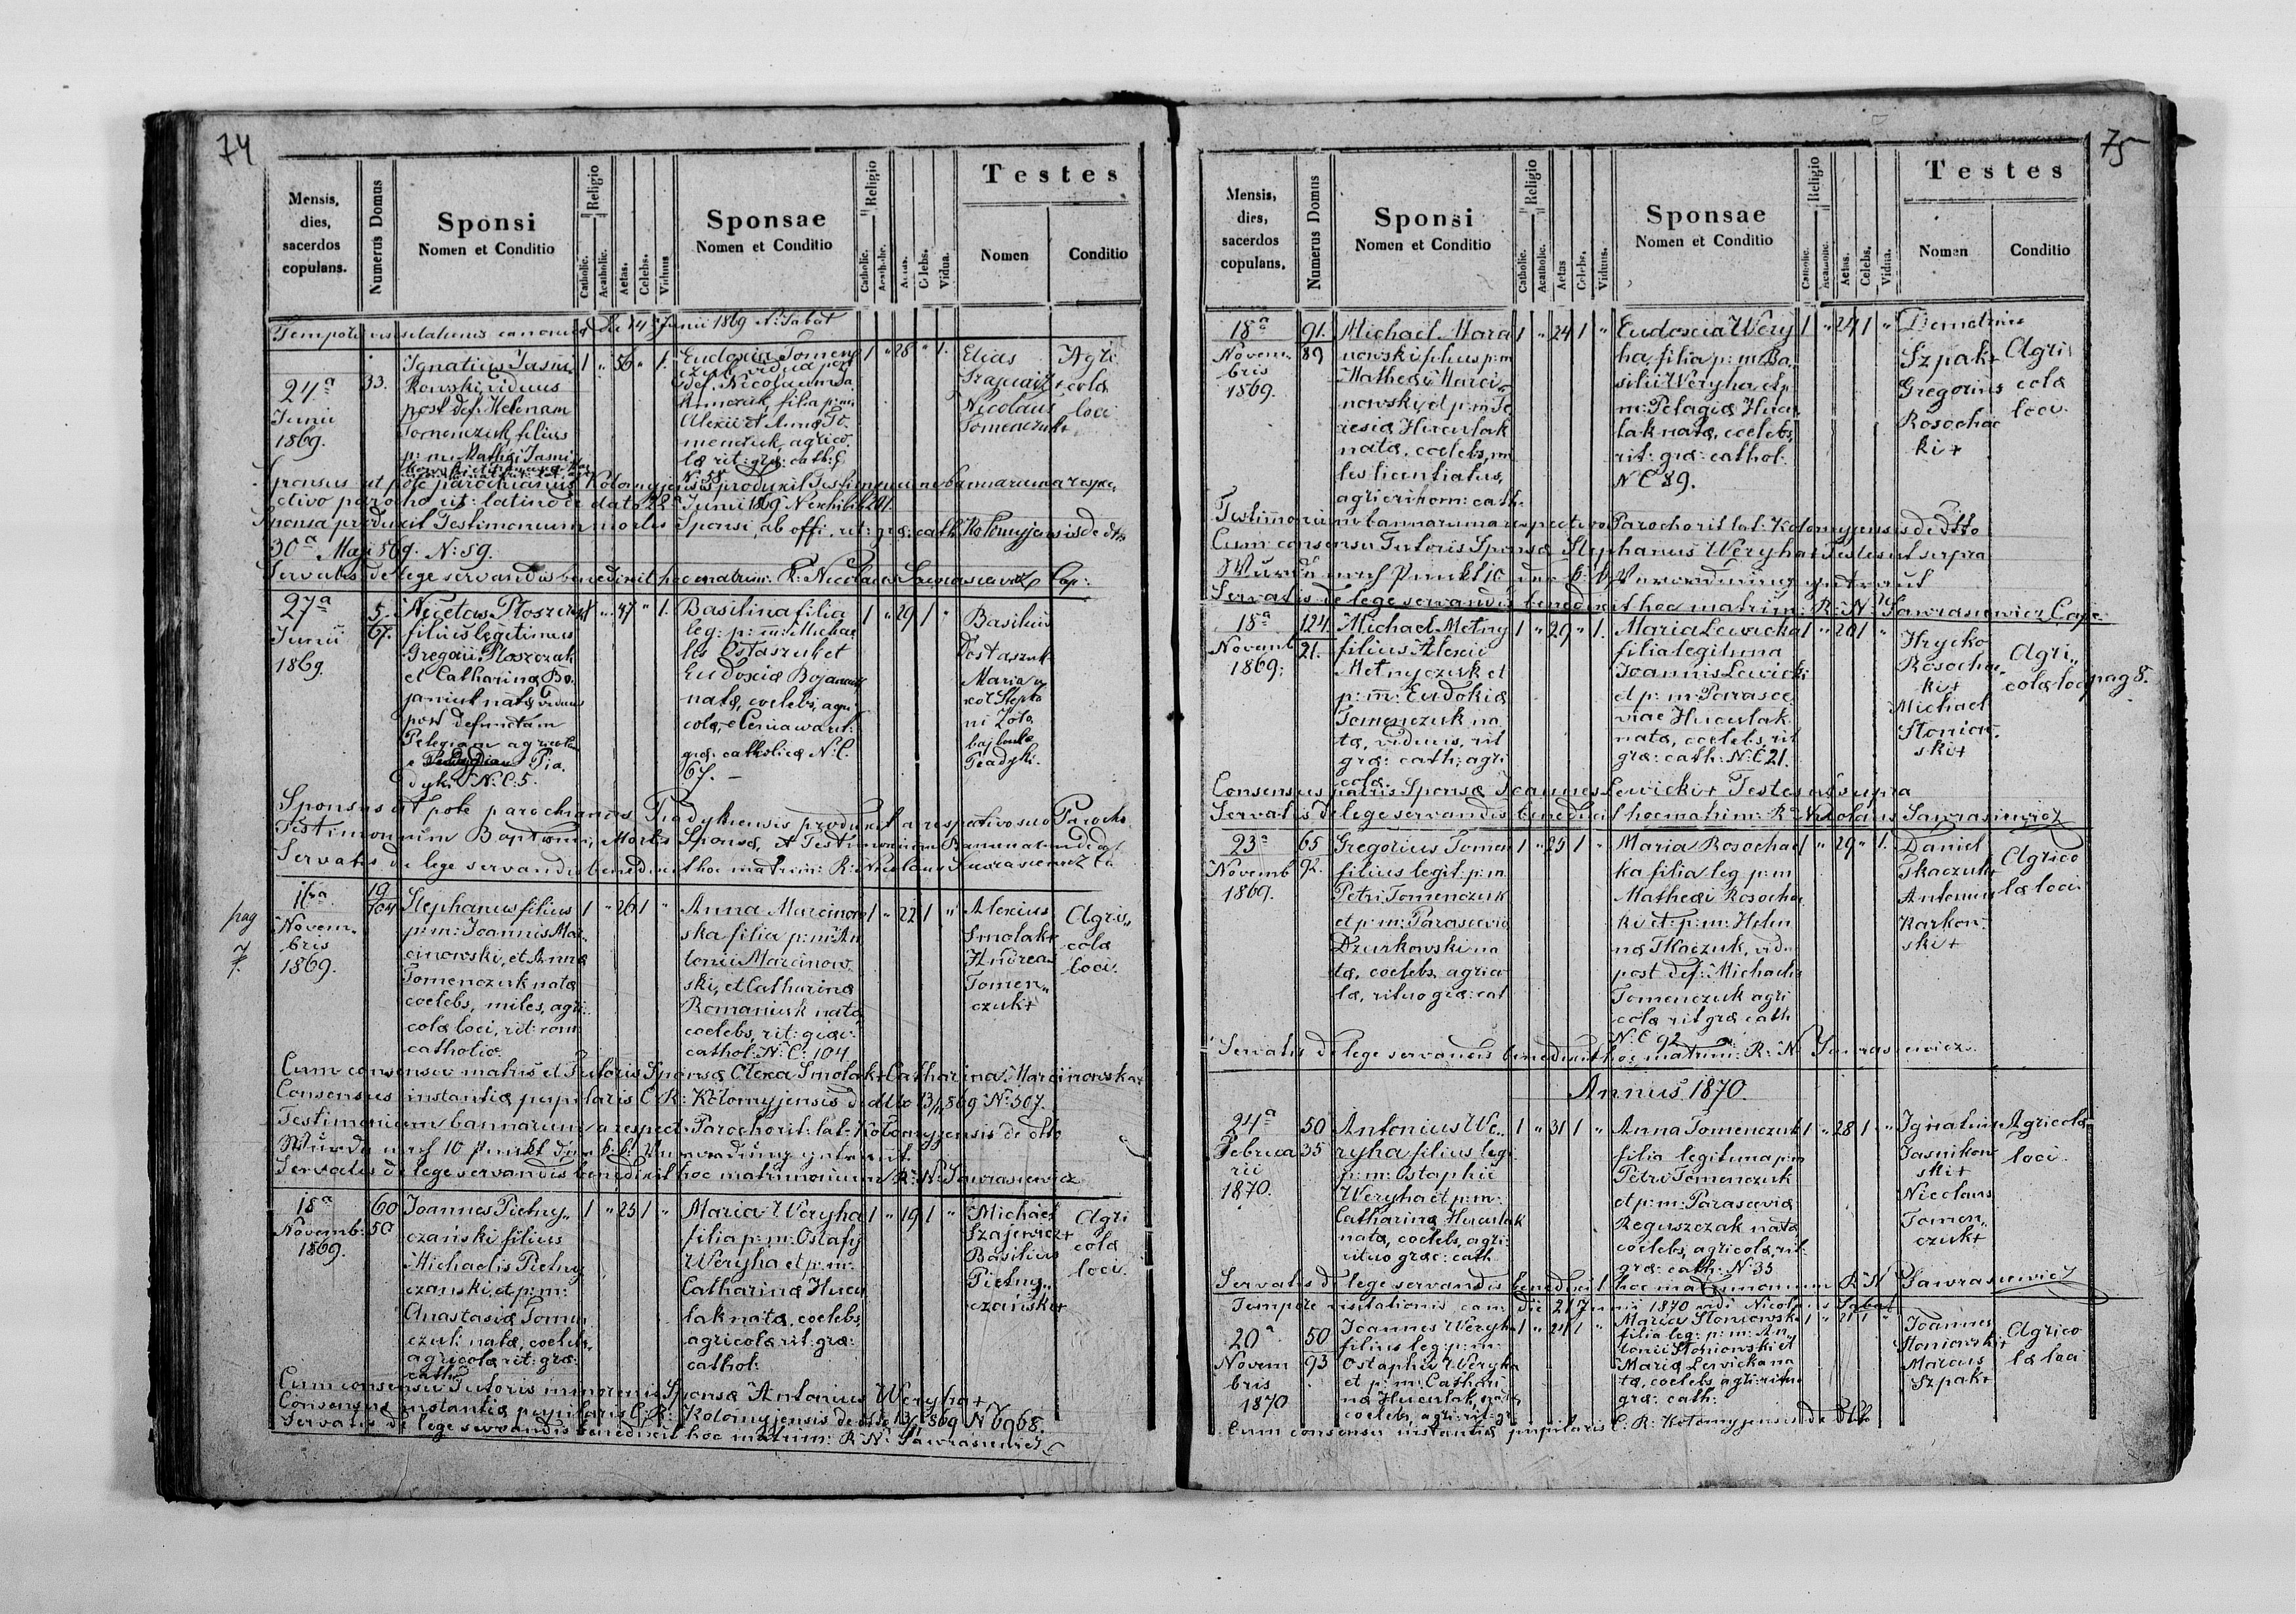 74
Mensis, dies, sacerdos copulans.
Numerus Domus
Sponsi
Nomen et Conditio
Religio
Catholic.
Acatholic.
Aetas.
Celebs.
Viduus
Sponsae
Nomen et Conditio
Religio
Catholic.
Celebs.
Vidua.
Testes
Nomen
Conditio
die 14 Junii 1869 N. Sabat
24a
Junii
1869.
33.
Ignatius Jasni
kowski viduus
post def. Helenam
Tomenczuk filius
p: m: Mathei Jasni
1 " 56 " 1.
Eudoxia Tomen
czuk vidua post
def. Nicolaum
filia p: m:
Alexii et Anna To
menczuk, agrico
la rit: græ: cath:
1 " 28 " 1.
Elias
Nicolaus
Tomenczuk+
Agri
cola
loci
Sponsus ut pote parochianus Kolomyjensis produxit Testimonium bannarum a respe
ctivo parocho rit: latino de dato 22 Junii 1869 N exhibit 291.
Sponsa produxit Testimonium mortis Sponsi, ab offi. rit: græ: cath Kolomyjensis de dtto
30a Maji 869. N: 59.
Servatis de lege servandis benedixit hoc matrim: R: Nicolaus Sawrasiewicz Cap:
27a
Junii
1869.
5.
67.
Nicetas Ploszczak
filius legitimus
Gregorii Ploszczak
et Catharina Bo
janiuk nata viduus
post defunctam
Pelagiam agricola
e Pia
dyki N: C: 5.
1 " 47 " 1.
Basilina filia
leg: p: m: Micha
lis Ostaszuk et
Eudoxia Bojaniuk
nata, coelebs, agri
cola, e Ceniawa rit:
græ catholica N. C.
67. –
1 " 29 1 "
Basilius
Ostaszuk
Maria u
xor Stepha
ni
Piadyki.
Sponsus ut pote parochianus Piadykensis produxit a respectivo suo Parocho
Testimonium Baptismi, Mortis Sponsæ, et Testimonium Bannarum
Servatis de lege servandis benedixit hoc matrim: R: Nicolaus Sawrasiewicz
pag
7.
Novem„
bris
1869.
19
104
Stephanus filius
p: m: Joannis Mar
cinowski, et Anna
Tomenczuk nata
coelebs, miles, agri
cola loci, rit: rom
catholic.
1 " 26 1 "
Anna Marcinow
ska filia p: m: An
tonii Marcinow
ski, et Catharina
Romaniuk nata
coelebs, rit: græc:
cathol: N: C: 104
1 " 22 1 "
Alexius
Smolak+
Andreas
Tomen„
czuk+
Agri„
cola
loci.
Cum consensu matris et Tutoris Sponsæ Olexa Smolak+ Catharina Marcinowska+
Consensus instantiæ pupilaris C. R: Kolomyjensis de dtto 13/11 869 No 507.
Testimonium bannarum a respect: Parocho rit: lat: Kolomyjensis de dtto
Wurde nach 10 Punkt der k. k. Verordnung getraut.
Servatis de lege servandis benedixit hoc matrimonium R: N: Sawrasiewicz
18a
Novemb:
1869.
60
50
Joannes Pietny„
czański filius
Michaelis Pietny
czanski, et p: m:
Anastasia Tomen
czuk nata, coelebs,
agricola rit: græ:
cath:
1 " 23 1 "
Maria Weryha
filia p: m: Ostafij
Weryha et p: m:
Catharina Hucu
lak nata, coelebs,
agricola rit: græ:
cathol:
1 " 19 1 "
Michael
Szajewicz+
Basilius
Pietny„
czański+
Agri
cola
loci.
Cum consensu Tutoris minorennis Sponsæ Antonius Weryha+
Consensus instantiæ pupilaris C. R: Kolomyjensis de dtto 13/11 869 N 6968.
Servatis de lege servandis benedixit hoc matrim: R. N: Sawrasiewicz
75
Mensis, dies, sacerdos copulans.
Numerus Domus
Sponsi
Nomen et Conditio
Religio
Catholic.
Acatholic.
Aetas
Celebs.
Viduus.
Sponsae
Nomen et Conditio
Religio
Catholic.
Acatholic.
Aetas.
Celebs.
Vidua.
Testes
Nomen
Conditio
18a
Novem
bris
1869.
91.
89
Michael Marci
nowski filius p: m
Mathæi Marci„
nowski, et p: m Te
resia Huculak
nata, coelebs, mi
les licentiatus,
agri: rit rom: cath.
1 " 24 1 "
Eudoxia Wery
ha filia p: m: Ba„
silii Weryha et p:
m: Pelagia Hucu
lak nata, coelebs,
rit: græ: cathol:
N C 89.
1 " 24 1 "
Demetrius
Szpak+
Gregorius
Rosochac
ki+
Agri
cola
loci.
Testimonium bannarum a respectivo Parocho rit lat: Kolomyjensis de dtto
Cum consensu Tutoris Sponsæ Stephanus Weryha+ Testes ut supra
Wurde nach Punkt 10 der k: k: Verordnung getraut
Servatis de lege servandis benedixit hoc matrim: R: N: Sawrasiewicz Cap:
18a
Novemb
1869:
124
21.
Michael Metny
filius Alexii
Metnyczuk et
p: m: Eudokia
Tomenczuk na
ta, viduus, rit
græ: cath: agri
cola.
1 " 29 " 1.
Maria Lewicka
filia legitima
Joannis Lewicki
et p: m: Parasce
viae Huculak
nata, coelebs, rit
græ: cath: N: C 21.
1 " 20 1 "
Hrycko
Rosochac
ki+
Michael
Stoniow„
ski+
Agri„
cola loci
pag 8.
Consensus patris Sponsæ Joannes Lewicki+ Testes ut supra
Servatis de lege servandis benedixit hoc matrim: R: Nikolaus Sawrasiewicz
23a
Novemb
1869.
65
92.
Gregorius Tomen
filius legit: p: m.
Petri Tomenczuk
et p: m: Parascevia
Dzurkowski na
ta, coelebs, agrico
la, rituo græ: cat
1 " 25 1 "
Maria Rosochac
ka filia leg: p: m
Mathæi Rosochac
ki et: p: m: Hele
na Tkaczuk, vidu
post def: Michaelis
Tomenczuk agri
cola rit græ cath
N: C 92
1 " 29 " 1.
Daniel
Tkaczuk+
Antonius
Karkow
ski+
Agrico
la loci
Servatis de lege servandis benedixit hoc matrim: R: N: Sawrasiewicz
Annus 1870.
24a
Februa
rii
1870.
50
35
Antonius We„
ryha filius leg:
p: m: Ostaphii
Weryha et p: m:
Catharina Huculak
nata, coelebs, agri:
rituo græc: cath
1 " 31 1 "
Anna Tomenczuk
filia legitima p: m
Petri Tomenczuk
et p: m: Parascevia
Reguszczak nata
coelebs, agricola, rit:
græ: cath: N: 35
1 " 28 1 "
Ignatius
Jasnikow
ski+
Nicolaus
Tomen„
czuk+
Agricola
loci
Servatis de lege servandis benedixit hoc matrimonium R: N Sawrasiewicz
Tempore visitationis can: die 21 Junii 1870 vidi Nicolaus Sabat
20a
Novem
bris
1870
50
93
Joannes Weryha
filius leg: p: m:
Ostaphii Weryha
et p: m: Cathari
na Huculak, nata
coelebs, agri: rit: gr
1 " 24 1 "
Maria Stoniowska
filia leg: p: m: An„
tonii Stoniowski et
Maria Lewicka na
ta, coelebs, agri: rituo
græ: cath:
1 " 21 1 "
Joannes
Stoniowski+
Marcus
Szpak+
Agrico
la loci
Cum consensu instantiæ pupilaris C. R: Kolomyjensis de dtto